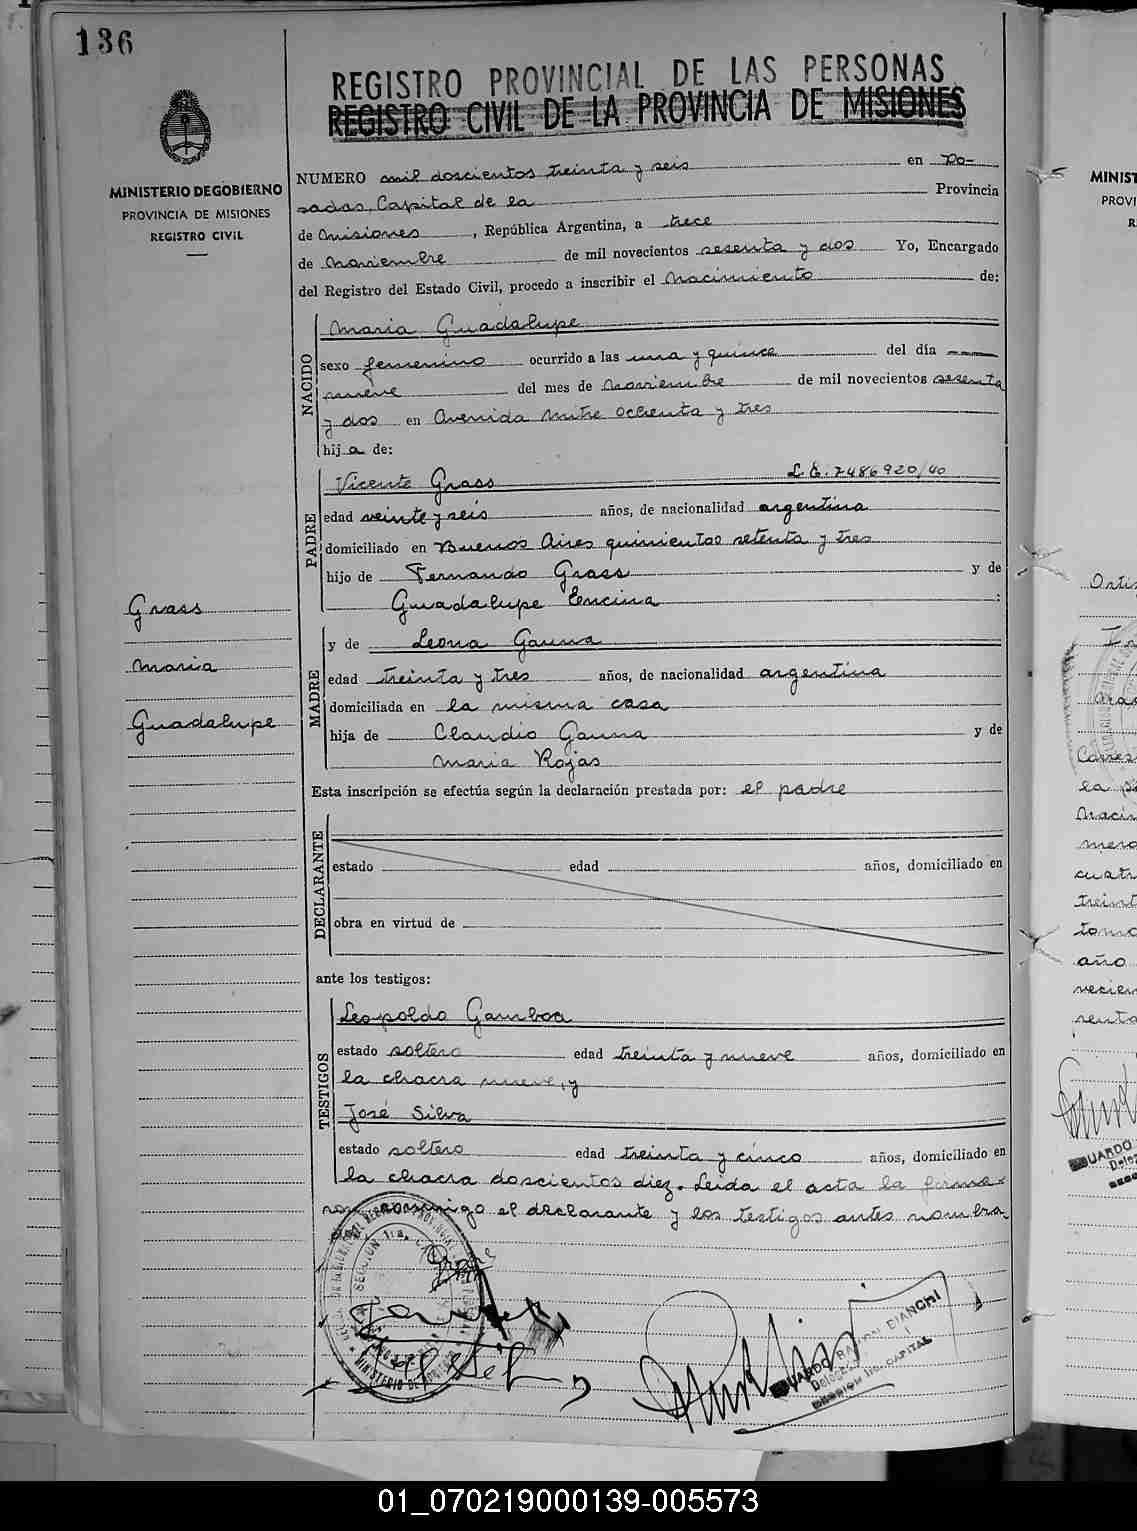 136
REGISTRO PROVINCIAL DE LAS PERSONAS
REGISTRO CIVIL DE LA PROVINCIA DE MISIONES
MINISTERIO DE GOBIERNO
PROVINCIA DE MISIONES
REGISTRO CIVIL
NUMERO mil doscientos treinta y seis en Po-
sadas, Capital de la Provincia
de Misiones, República Argentina, a trece
de Noviembre de mil novecientos sesenta y dos Yo, Encargado
del Registro del Estado Civil, procedo a inscribir el Nacimiento de:
NACIDO
Maria Guadalupe
sexo femenino ocurrido a las una y quince del día
nueve del mes de Noviembre de mil novecientos sesenta
y dos en Avenida Mitre Ochenta y tres
hija de:
PADRE
Vicente Grass L.E. 7486920/40
edad veinte y seis años, de nacionalidad argentina
domiciliado en Buenos Aires quinientos setenta y tres
hijo de Fernando Grass y de
Guadalupe Encina :
Grass
Maria
Guadalupe
MADRE
y de Leona Gauna
edad treinta y tres años, de nacionalidad argentina
domiciliada en la misma casa
hija de Claudio Gauna y de
Maria Rojas
Esta inscripción se efectúa según la declaración prestada por: el padre
DECLARANTE
estado edad años, domiciliado en
obra en virtud de
ante los testigos:
TESTIGOS
Leopoldo Gamboa
estado soltero edad treinta y nueve años, domiciliado en
la chacra nueve, y
José Silva
estado soltero edad treinta y cinco años, domiciliado en
la chacra doscientos diez. Leida el acta la firma-
ron conmigo el declarante y los testigos antes nombra-
MINIST
PROVI
R
Carres
la
año
01_070219000139-005573